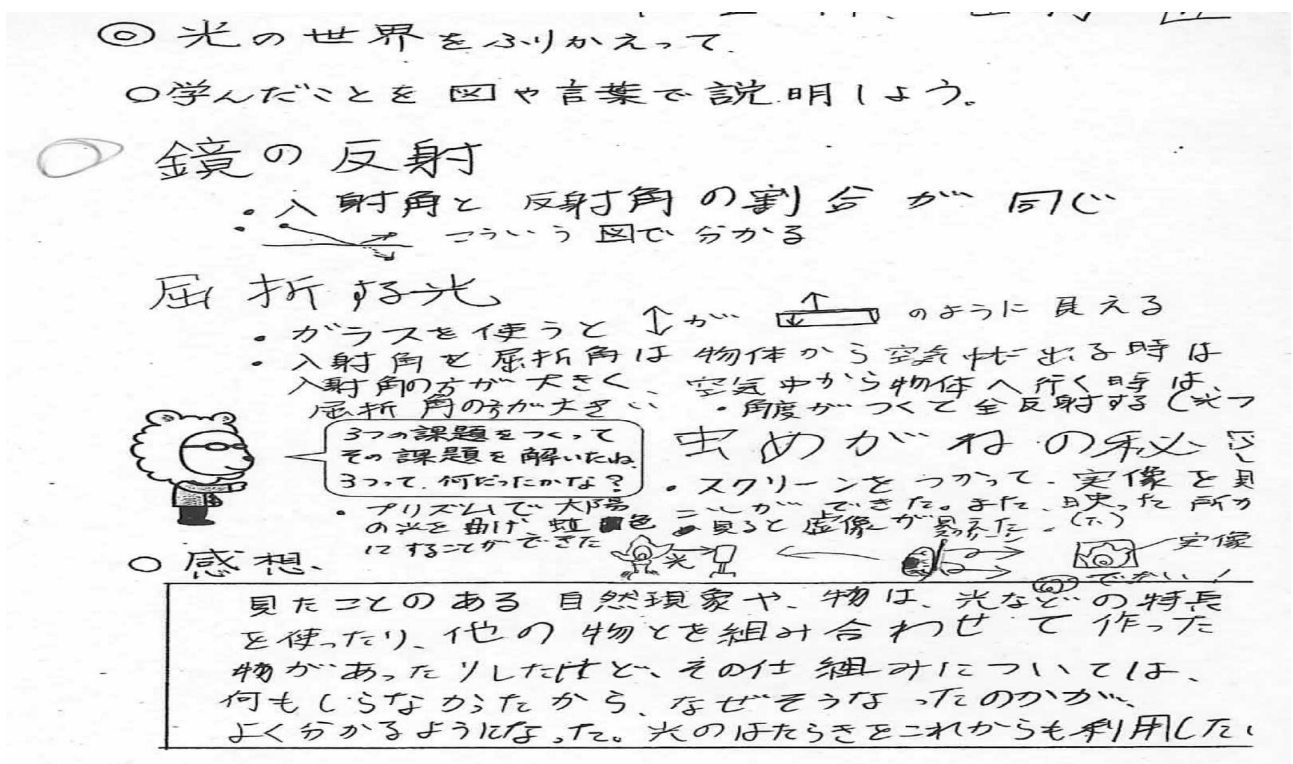 ◎ 光の世界をふりかえって.
○学んだことを図や言葉で説明しよう。
鏡の反射
・入射角と反射角の割合が同じ
・こういう図で分かる
屈折する光
・ガラスを使うと↕が のように見える
・入射角と屈折角は物体から空気中に出る時は
入射角の方が大きく、空気中から物体へ行く時は、
屈折角の方が大きい ・角度がつくて全反射する(光フ
3つの課題をつくって
その課題を解いたね。
3つって、何だったかな?
・プリズムで太陽
の光を曲げ虹色
にすることができた
虫めがねの秘
・スクリーンをつかって、実像を見
ことができた。また、映った所か
見ると虚像が見えた。
光
実像
でかい!
○感想、
見たことのある自然現象や、物は、光などの特長
を使ったり、他の物とを組み合わせて作った
物があったりしたけど、その仕組みについては、
何もしらなかったから、なぜそうなったのかが、
よく分かるようになった。光のはたらきをこれからも利用したい